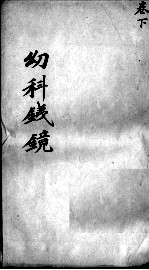 卷下
幼科銭鏡